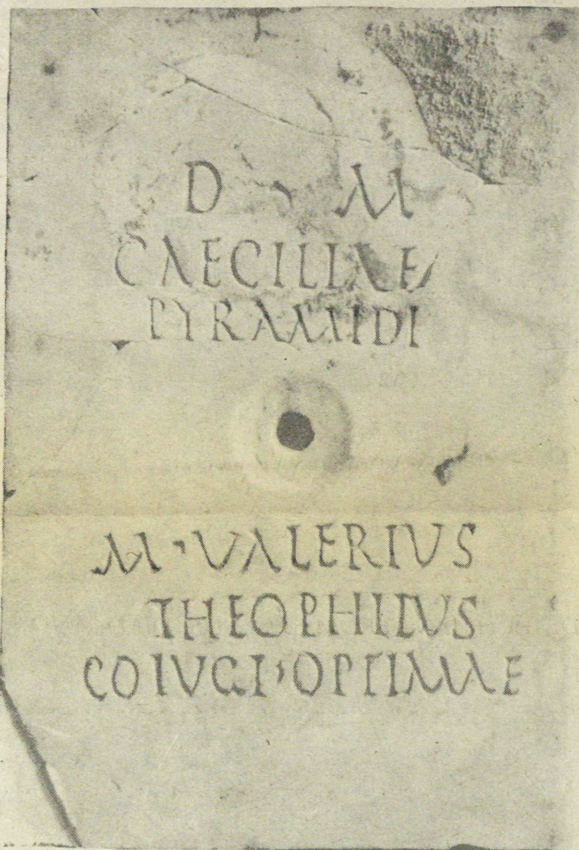 D M
CAECILIAE
PYRAMIDI
M · VALERIUS
THEOPHILUS
COIVGI · OPTIMAE